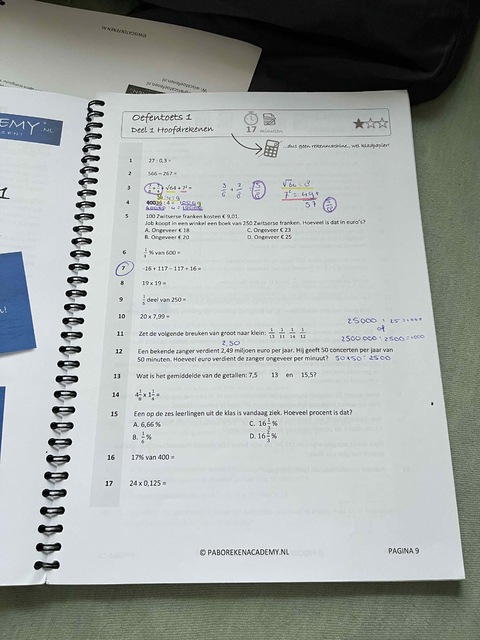 EMY.NL
1
Oefentoets 1
Deel 1 Hoofdrekenen
17 minuten
...dus geen rekenmachine, wel kladpapier!
1 27 : 0,3 =
2 566 – 267 =
3 √64 + 7² =
√64 = 8
7² = 49
57
4
5 100 Zwitserse franken kosten € 9,01.
Job koopt in een winkel een boek van 250 Zwitserse franken. Hoeveel is dat in euro's?
A. Ongeveer € 18 C. Ongeveer € 23
B. Ongeveer € 20 D. Ongeveer € 25
6 % van 600 =
7 -16 + 117 – 117 + 16 =
8 19 x 19 =
9 deel van 250 =
10 20 x 7,99 =
25000
of
11 Zet de volgende breuken van groot naar klein: 1/13 1/11 1/14 1/12
2,50
12 Een bekende zanger verdient 2,49 miljoen euro per jaar. Hij geeft 50 concerten per jaar van
50 minuten. Hoeveel euro verdient de zanger ongeveer per minuut? 50x50 = 2500
13 Wat is het gemiddelde van de getallen: 7,5 13 en 15,5?
14
15 Een op de zes leerlingen uit de klas is vandaag ziek. Hoeveel procent is dat?
A. 6,66 % C. 16 1/3 %
B. 1/6 % D. 16 2/3 %
16 17% van 400 =
17 24 x 0,125 =
© PABOREKENACADEMY.NL PAGINA 9